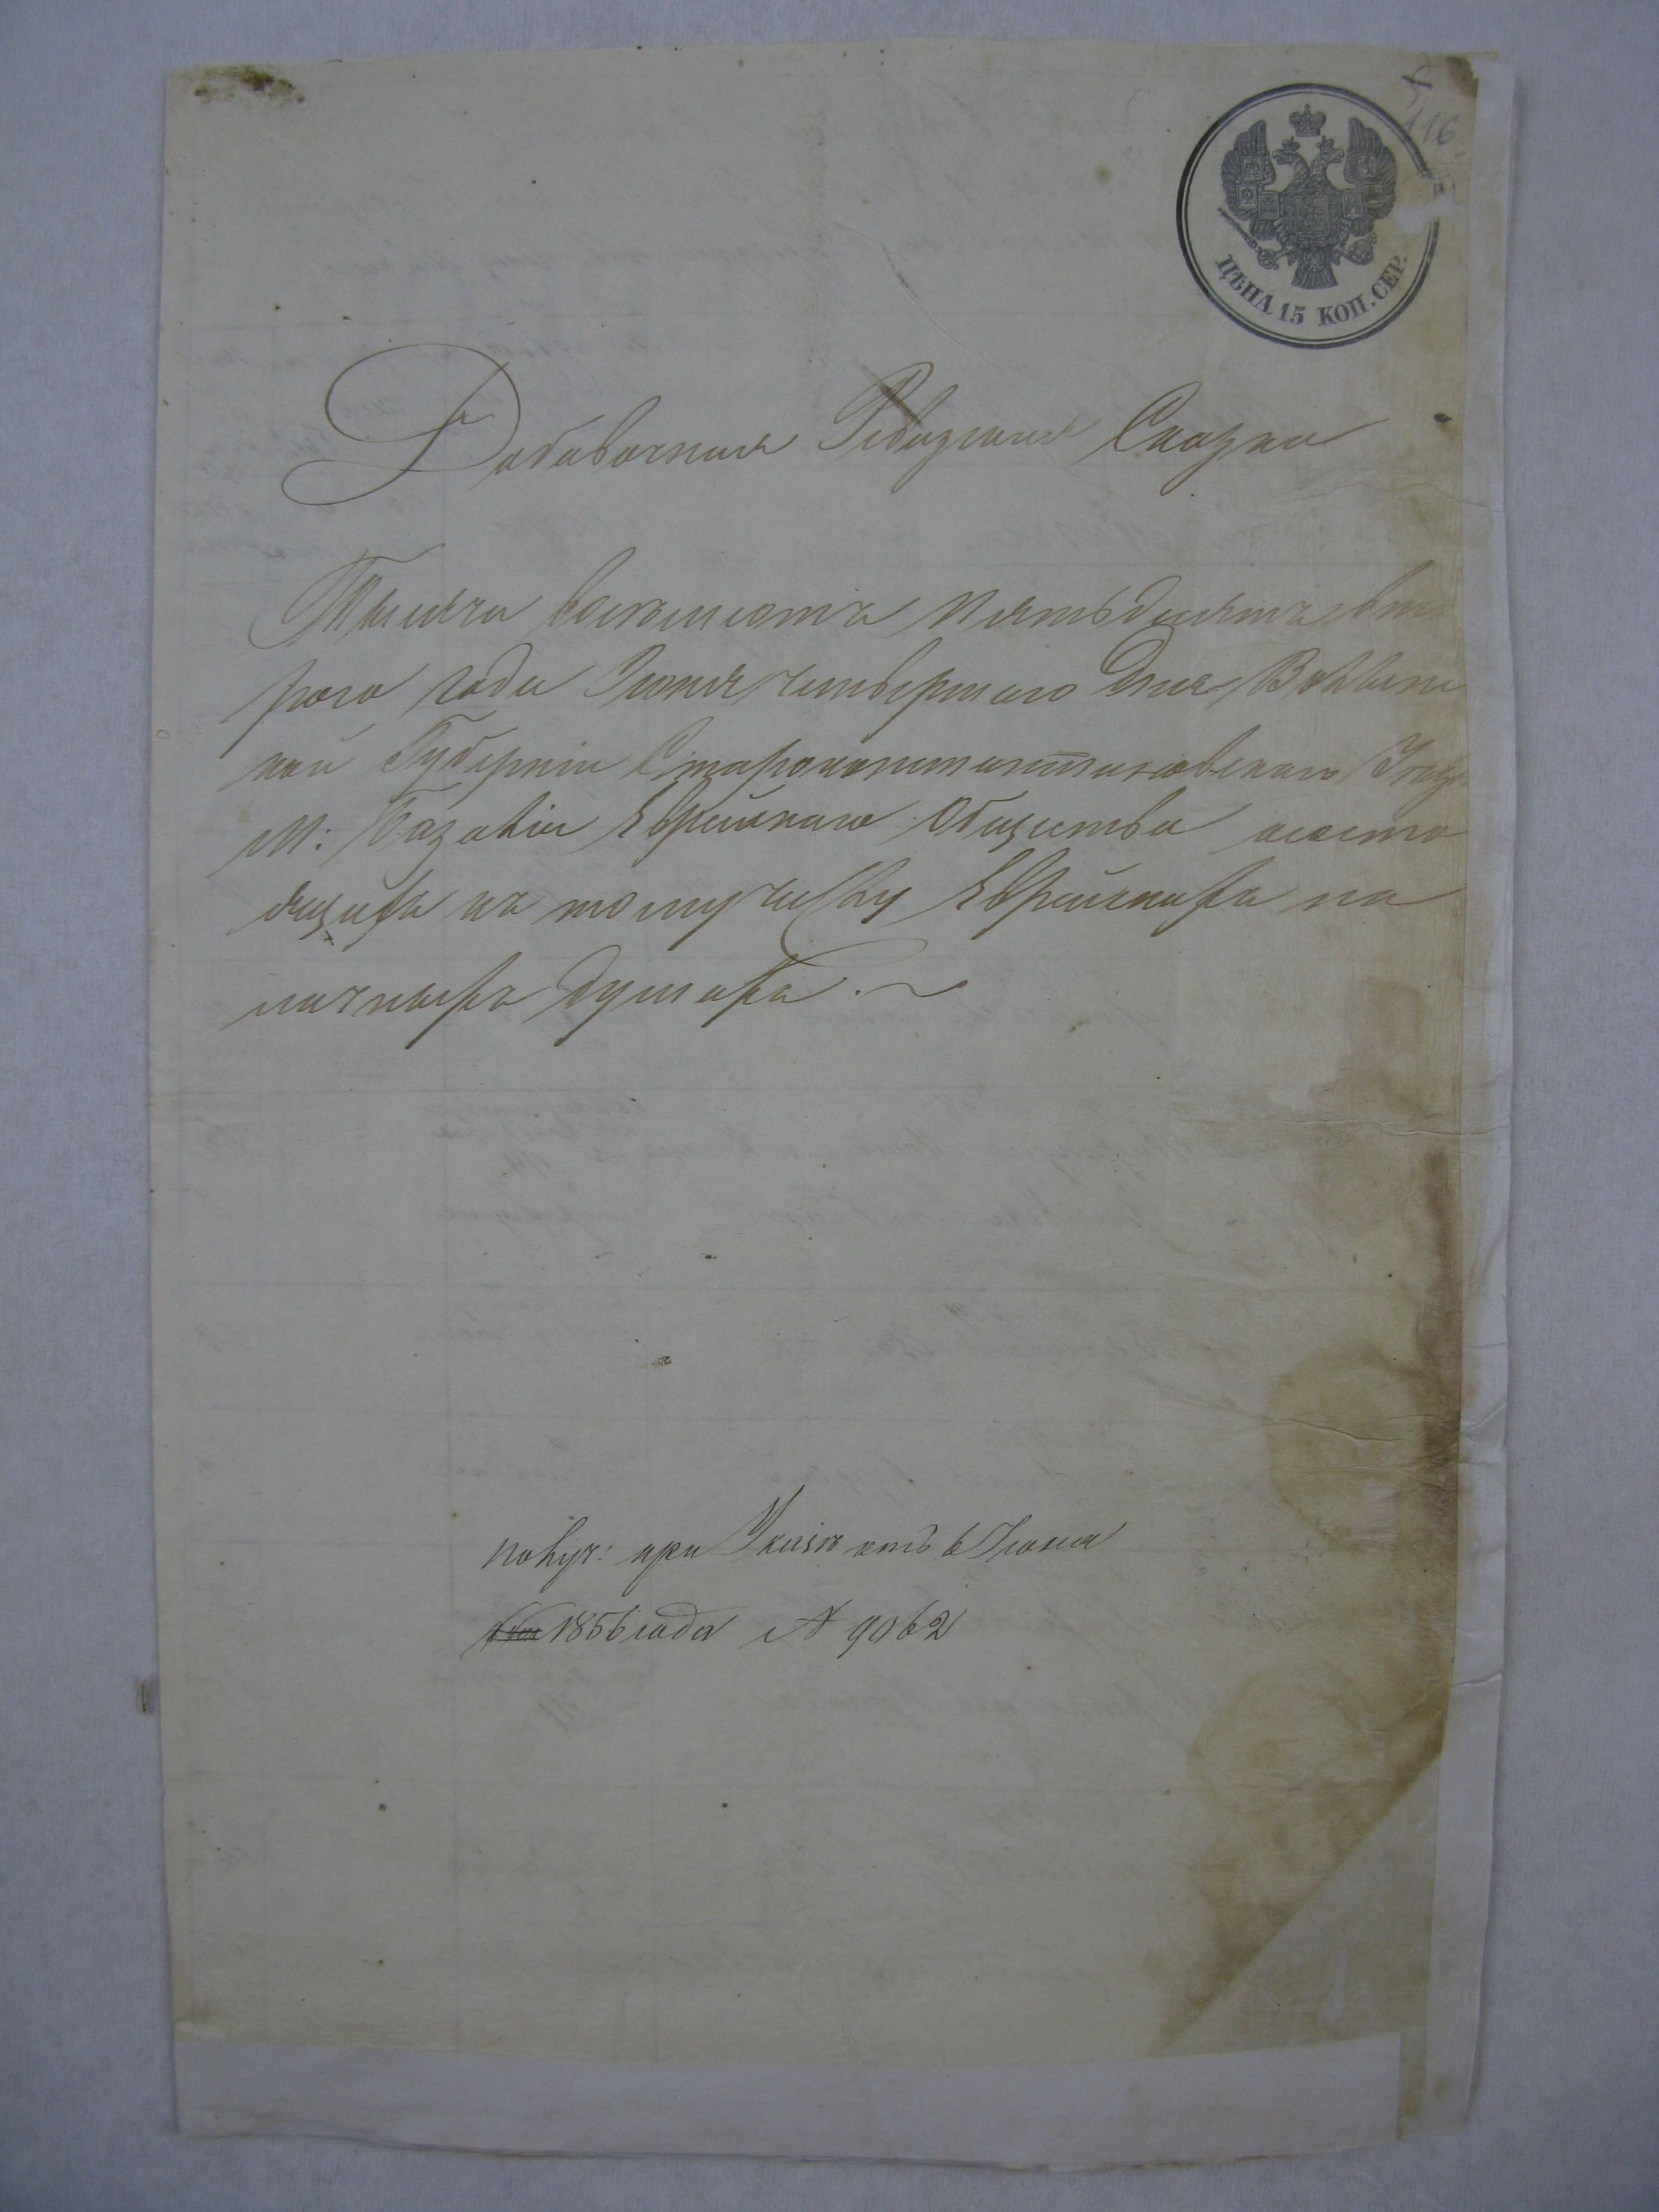 116
ЦѢНА 15 КОП. СЕР.
Добавочная Ревизская Сказка
Тысяча восемьсотъ пятьдесятъ вто
рого года Іюня четвертаго дня Волынс
кой Губерніи Староконстантиновскаго Уезда
М: Базаліи Еврейскаго Общества о состо
ящихъ къ тому числу Еврейскихъ на
личныхъ душахъ.
получ: при Указѣ отъ 6 Іюня
1856 года № 9062